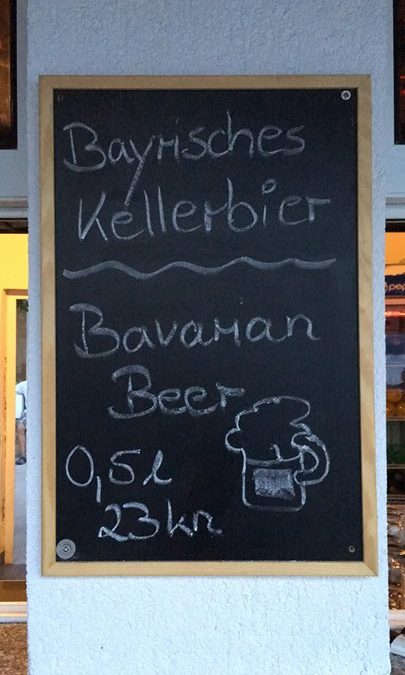 Bayrisches
Kellerbier
Bavarian
Beer
0,5l
23kn